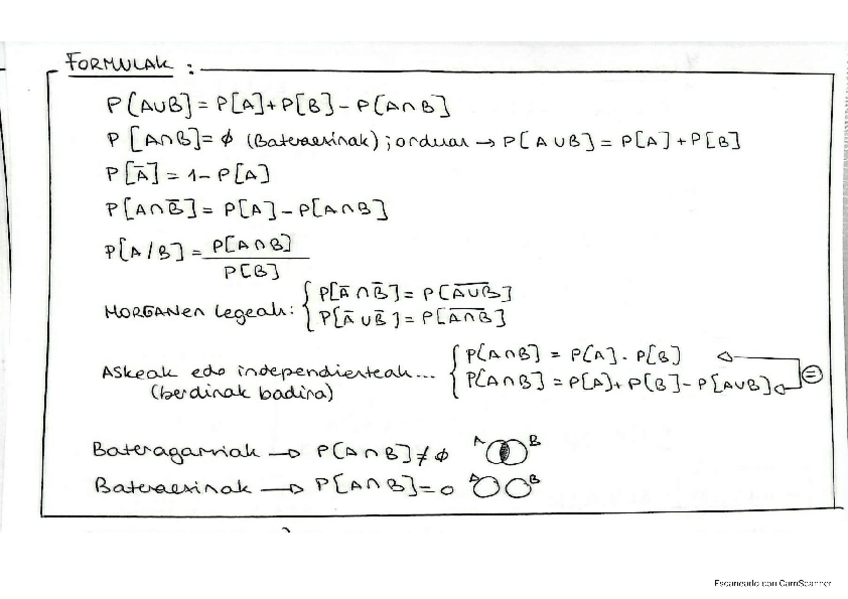 FORMULAK :
P[A∪B] = P[A] + P[B] - P[A∩B]
P[A∩B] = ϕ (Bateraezinak) ; orduan → P[A∪B] = P[A] + P[B]
P[Ā] = 1 - P[A]
P[A∩B̄] = P[A] - P[A∩B]
P[A/B] = P[A∩B] / P[B]
MORGANen legeak: { P[Ā∩B̄] = P[A̅∪̅B̅]
P[Ā∪B̄] = P[A̅∩̅B̅]
ASkeak edo independienteak... { P[A∩B] = P[A] · P[B]
(berdinak badira) P[A∩B] = P[A] + P[B] - P[A∪B] =
Bateragarriak → P[A∩B] ≠ ϕ A B
Bateraezinak → P[A∩B] = 0 A B
Escaneado con CamScanner